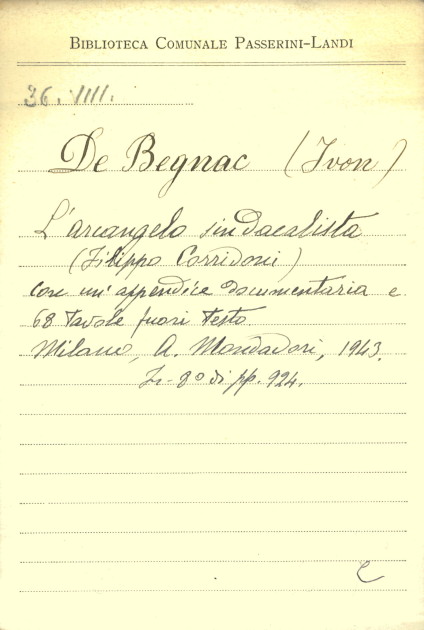 BIBLIOTECA COMUNALE PASSERINI-LANDI
36. VIII.
De Begnac (Ivon)
L'arcangelo sindacalista
(Filippo Corridoni)
con un'appendice documentaria e
68 tavole fuori testo
Milano, A. Mondadori, 1943.
In-8° di pp. 924.